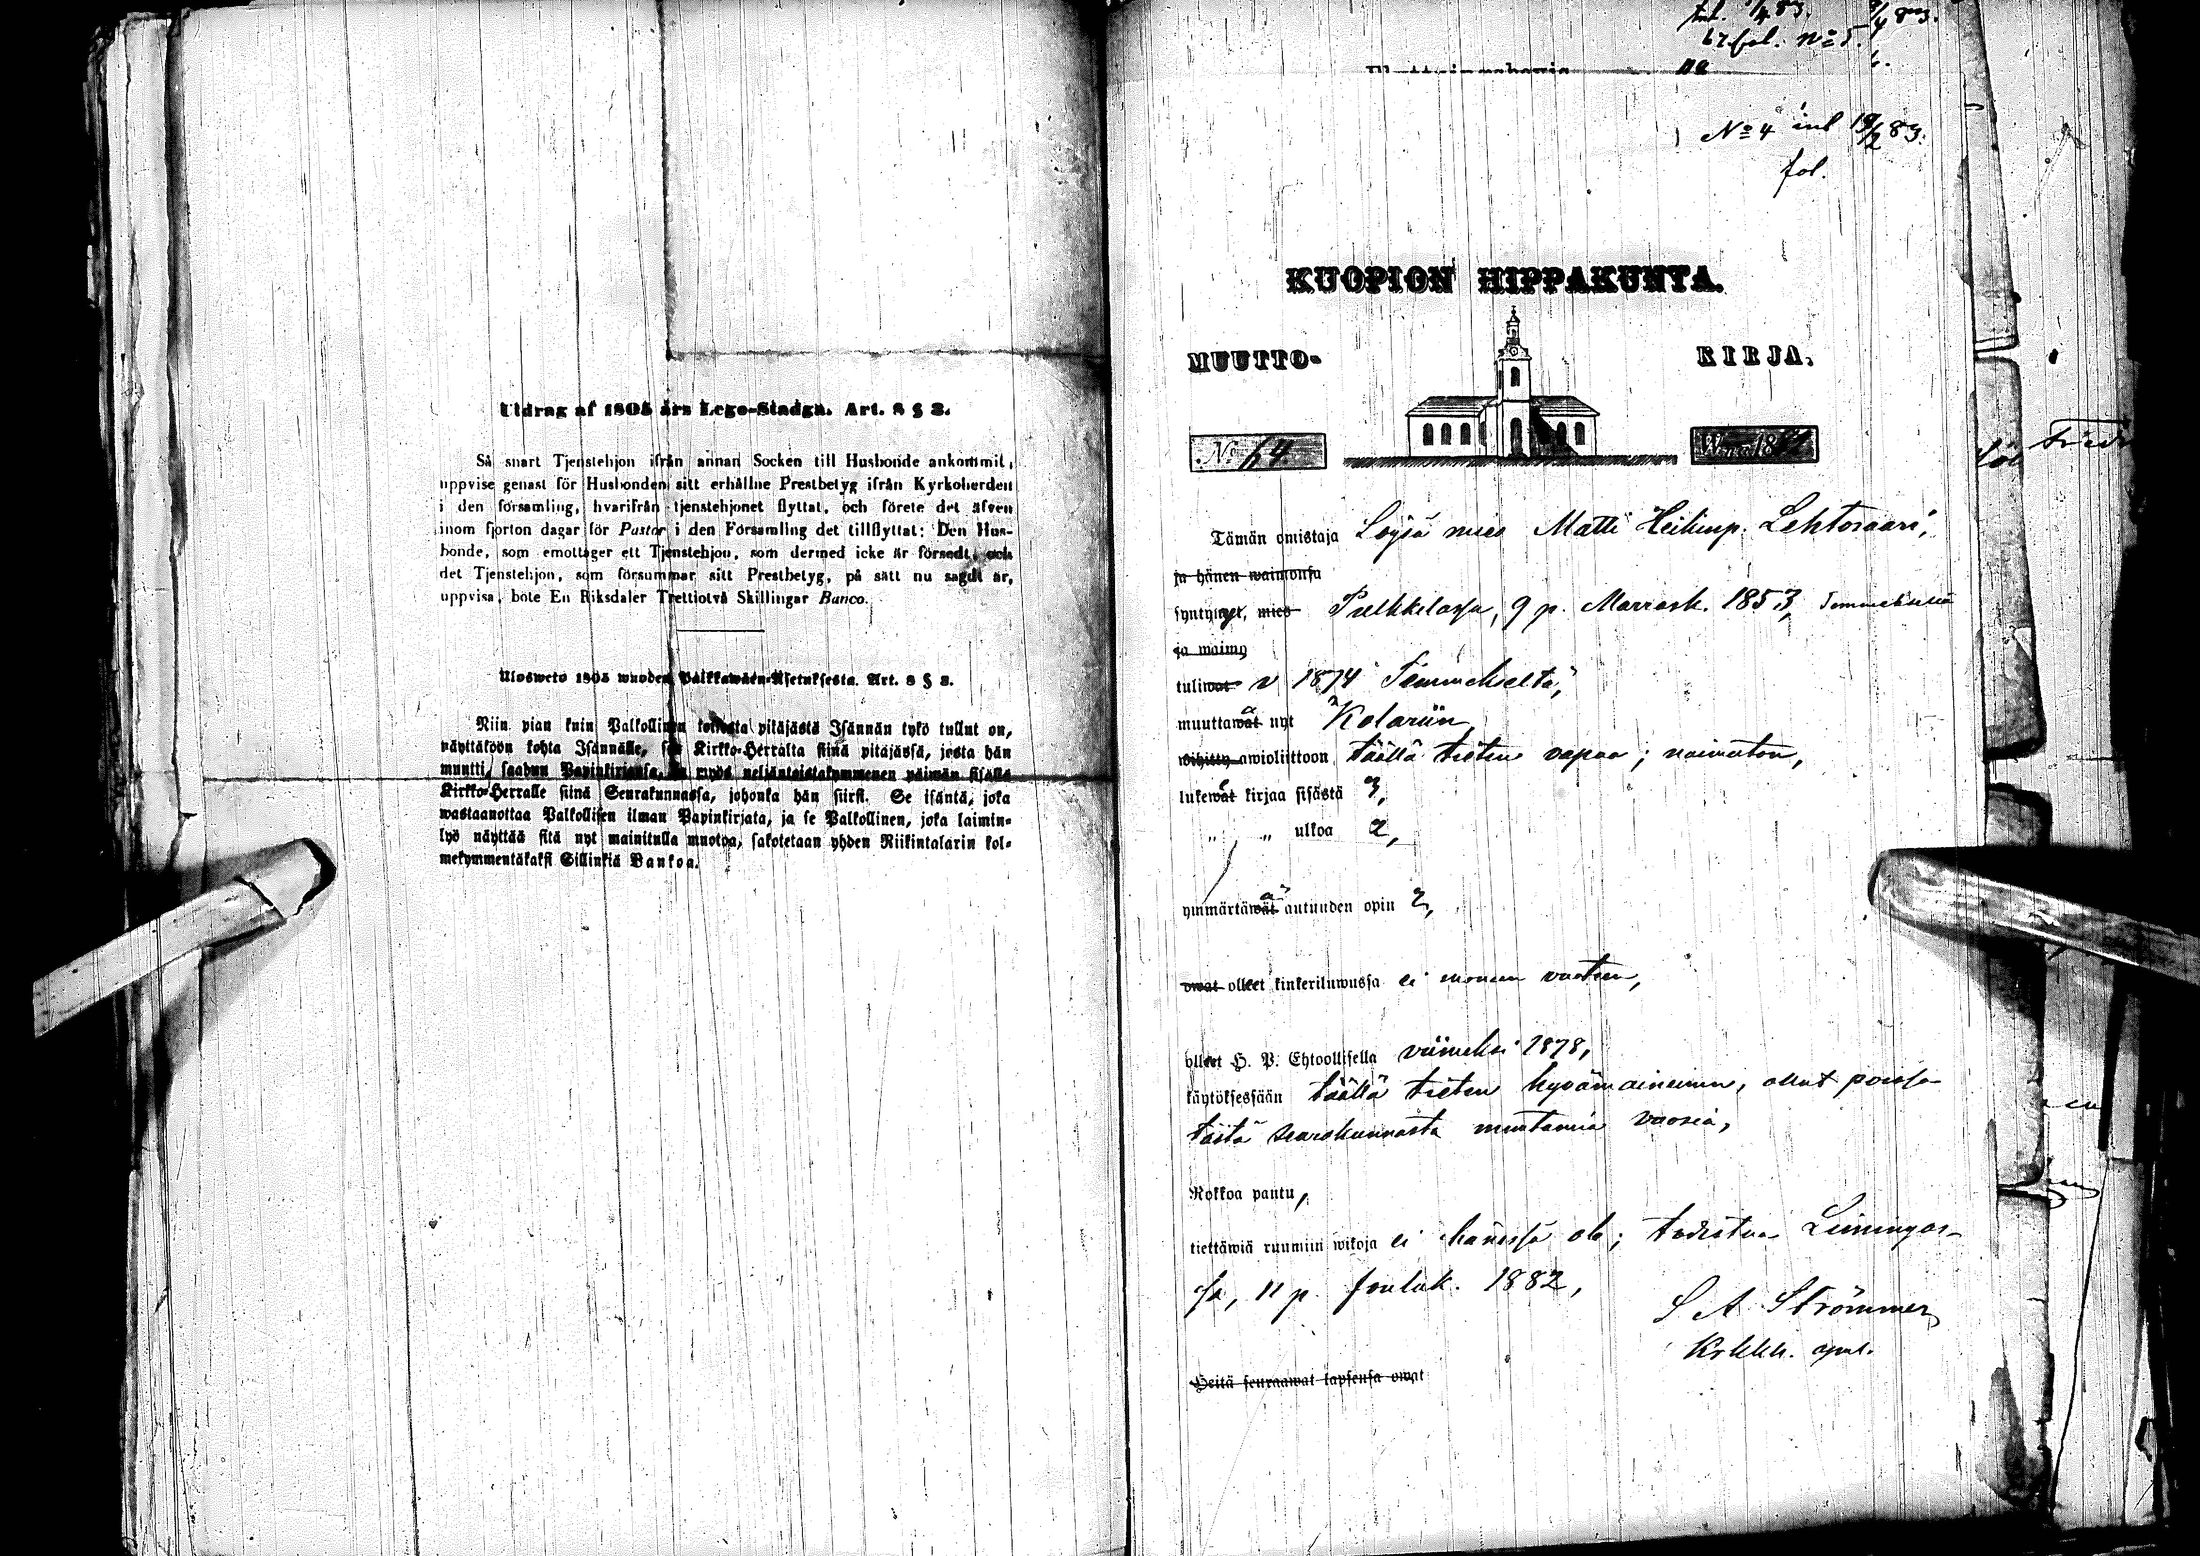 Utdrag af 1805 års Lego-Stadga. Art. 8 § 3.
Så snart Tjenstehjon ifrån annan Socken till Husbonde ankommit,
uppvise genast för Husbonden sitt erhållne Prestbetyg ifrån Kyrkoherden
i den församling, hvarifrån tjenstehjonet flyttat, och förete det äfven
inom fjorton dagar för Pastor i den Församling det tillflyttat: Den Hus-
bonde, som emottager ett Tjenstehjon, som dermed icke är försedt, och
det Tjenstehjon, som försummar sitt Prestbetyg, på sätt nu sagdt är,
uppvisa, böte En Riksdaler Trettiotvå Skillingar Banco.
Ulosweto 1805 wuoden Palkkawäen-Asetuksesta. Art. 8 § 3.
Niin pian kuin Palkollinen toisesta pitäjästä Isännän tykö tullut on,
näyttäköön kohta Isännälle, sen Kirkko-Herralta siinä pitäjässä, josta hän
muutti, saadun Papinkirjansa, ja myös neljäntoistakymmenen päiwän sisällä
Kirkko-Herralle siinä Seurakunnassa, johonka hän siirsi. Se isäntä, joka
wastaanottaa Palkollisen ilman Papinkirjata, ja se Palkollinen, joka laimin-
lyö näyttää sitä nyt mainitulla muotoa, sakotetaan yhden Riikintalarin kol-
mekymmentäkaksi Sillinkiä Bankoa.
67 fol. No 5.
No 4 inl 19/2 83.
fol.
KUOPION HIPPAKUNTA.
MUUTTO- KIRJA.
No 64. Wnna 1882
Tämän omistaja Loysä mies Matti Heikinp. Lehtosaari,
ja hänen waimonsa
syntynyt, mies Pulkkilassa, 9 p. Marrask. 1853,
ja waimo
tuliwat v 1874 Temmekseltä,
muuttawat nyt Kolariin
wihitty awioliittoon täällä tieten vapaa; naimaton,
lukewat kirjaa sisästä 3,
„ „ ulkoa 2,
ymmärtäwät autuuden opin 2,
owat olleet kinkeriluwussa ei moneen vuoteen,
olleet H. P. Ehtoollisella viimeksi 1878,
käytöksessään täällä tieten hyvämaineinen, ollut poissa
tästä seurakunnasta muutamia vuosia,
Rokkoa pantu,
tiettäwiä ruumiin wikoja ei hänessä ole; todistaa Limingas-
sa, 11 p. Jouluk. 1882,
S A Strömmer
Krkkh. apul.
Heitä seuraawat lapsensa owat